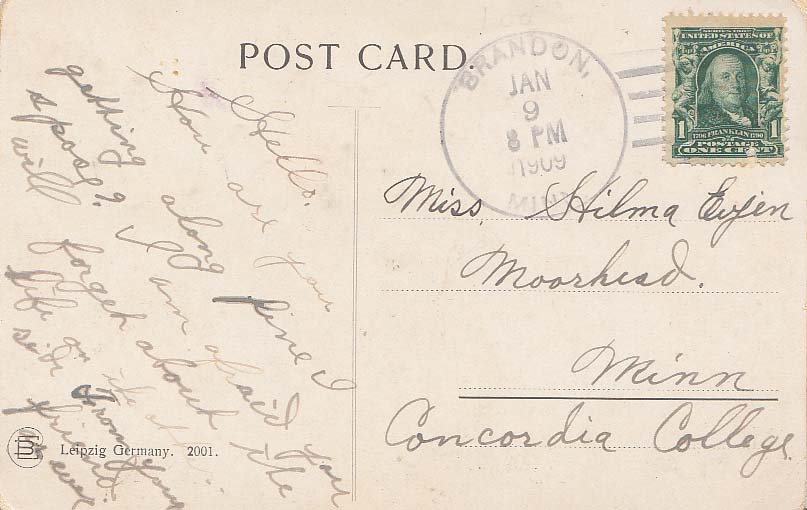 POST CARD.
BRANDON,
JAN
9
8 PM
1909
MINN
SERIES 1902
UNITED STATES OF
AMERICA
1 1706 FRANKLIN 1790 1
POSTAGE
ONE CENT
Hello.
How are you
getting along fine I
spose? I am afraid you
will forget about the
life on the
side From your
friend
as ever
Miss. Hilma Evjen
Moorhead.
Minn
Concordia College.
Leipzig Germany. 2001.